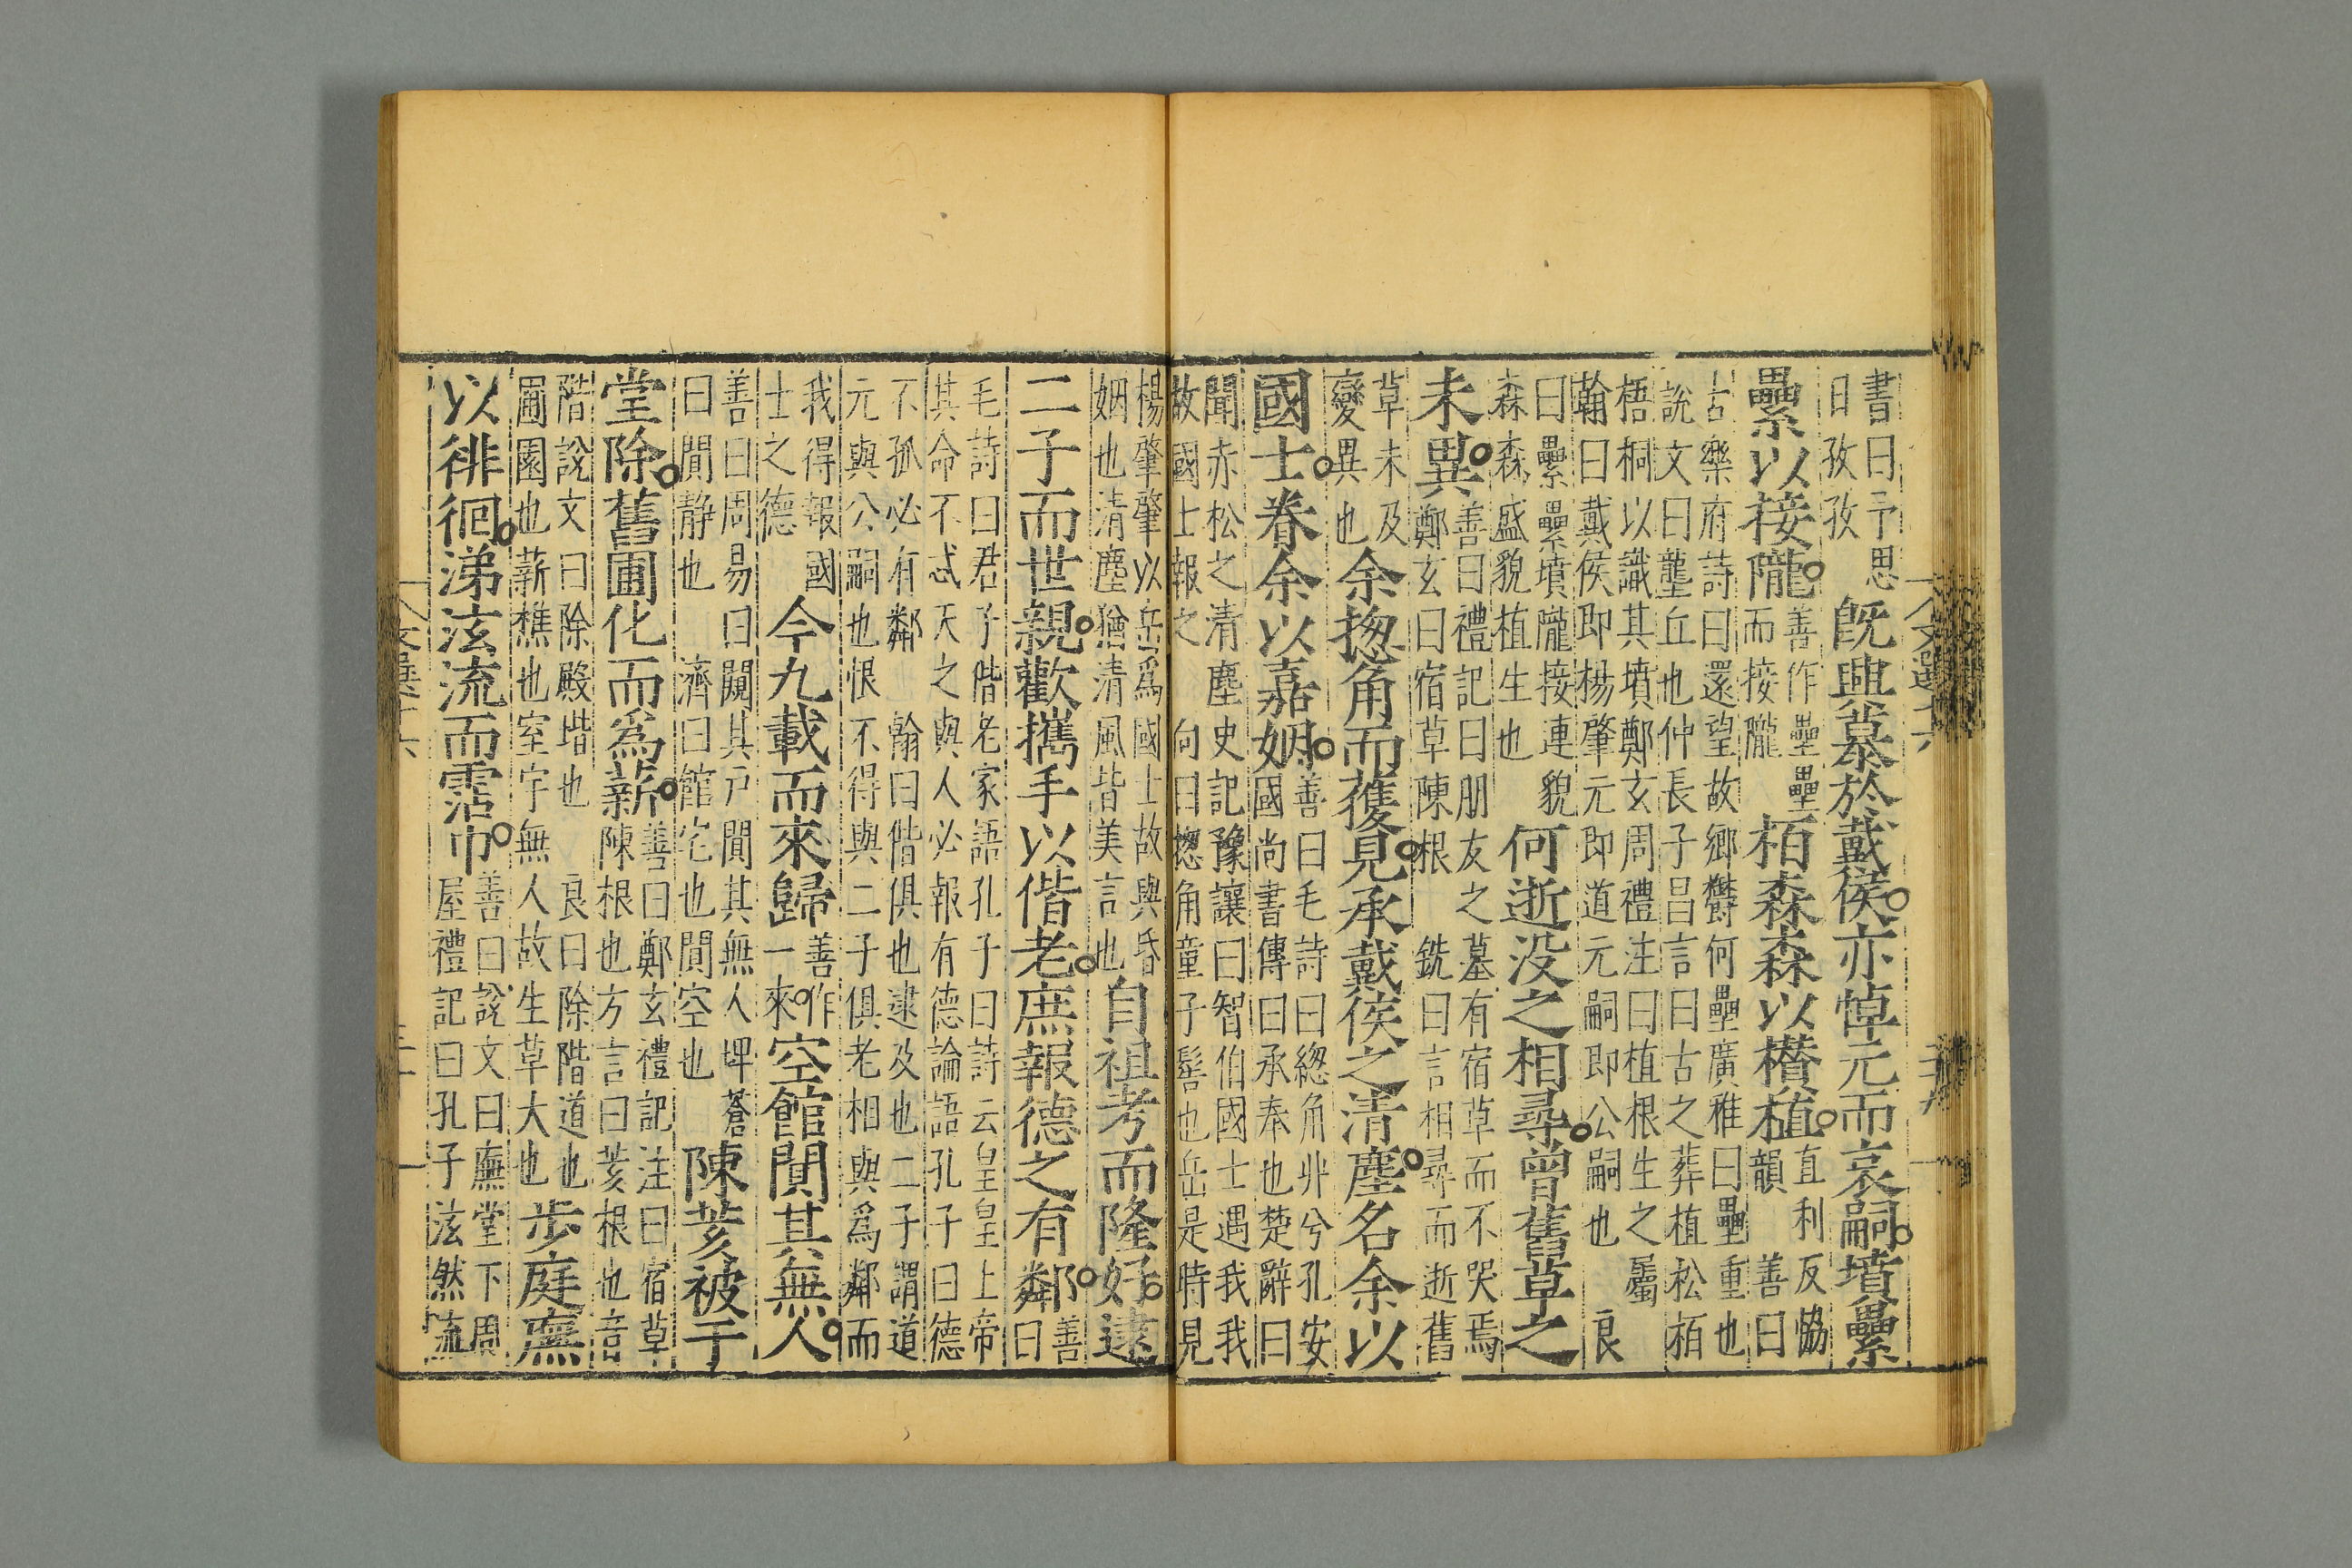 書曰予思
日孜孜
既興慕於戴侯亦悼元而哀嗣墳纍
纍以接隴
善作壘壘
而接隴
栢森森以欑植
直利反協
韻　善曰
古樂府詩曰還望故鄉欝何壘廣稚曰壘重也
說文曰壟丘也仲長子昌言曰古之葬植松栢
梧桐以識其墳鄭玄周禮注曰植根生之屬　良
翰曰戴侯即楊肇元即道元嗣即公嗣也
曰纍纍墳隴接連貌
森森盛貌植生也
何逝没之相尋曾舊草之
未異
善曰禮記曰朋友之墓有宿草而不哭焉
鄭玄曰宿草陳根　銑曰言相尋而逝舊
草未及
變異也
余揔角而䕶見承戴侯之清塵名余以
國士眷余以嘉姻
善曰毛詩曰緫角丱兮孔安
國尚書傳曰承奉也楚辭曰
聞赤松之清塵史記豫讓曰智伯國士遇我我
故國士報之　向曰揔角童子髻也岳是時見
楊肇肇以岳爲國士故與昏
姻也清塵猶清風皆美言也
自祖考而隆好逮
二子而世親歡攜手以偕老庶報德之有鄰
善
曰
毛詩曰君子偕老家語孔子曰詩云皇皇上帝
其命不忒天之與人必報有德論語孔子曰德
不孤必有鄰　翰曰偕俱也逮及也二子謂道
元與公嗣也恨不得與二子俱老相與爲鄰而
我得報國
士之德
今九載而來歸
善作
一來
空館闃其無人
善曰周易曰闚其戶閴其無人埤蒼
曰閴静也　濟曰館宅也閴空也
陳荄被于
堂除舊圃化而爲薪
善曰鄭玄禮記注曰宿草
陳根也方言曰荄根也音
階說文曰除殿堦也　良曰除階道也
圃園也薪樵也室宇無人故生草大也
步庭廡
以徘徊涕泫流而霑巾
善曰說文曰廡堂下周
屋禮記曰孔子泫然流
文選十六
二十九